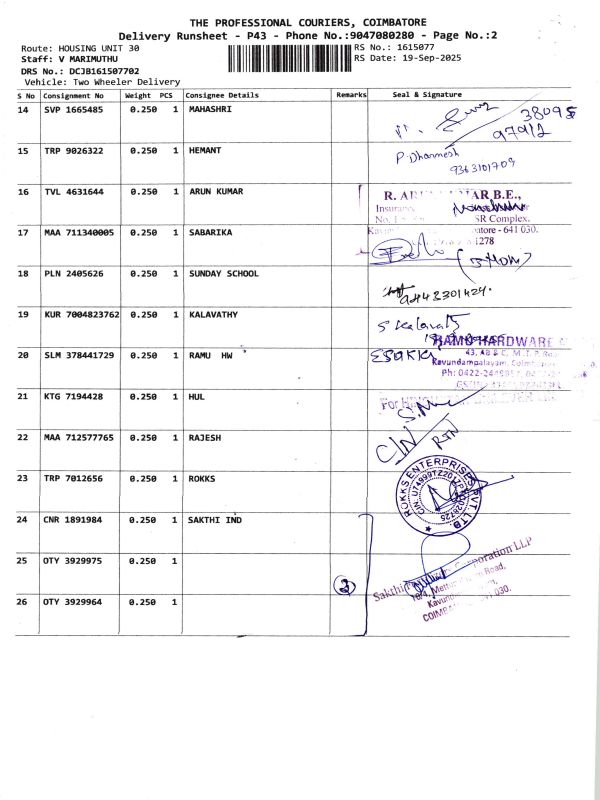 THE PROFESSIONAL COURIERS, COIMBATORE
Delivery Runsheet - P43 - Phone No.:9047080280 - Page No.:2
Route: HOUSING UNIT 30
RS No.: 1615077
Staff: V MARIMUTHU
RS Date: 19-Sep-2025
DRS No.: DCJB161507702
Vehicle: Two Wheeler Delivery
S No Consignment No Weight PCS Consignee Details Remarks Seal & Signature
14 SVP 1665485 0.250 1 MAHASHRI
38095
97912
15 TRP 9026322 0.250 1 HEMANT P. Dharmesh
9363101709
16 TVL 4631644 0.250 1 ARUN KUMAR
B.E.,
SR Complex.
17 MAA 711340005 0.250 1 SABARIKA
641 030.
1278
18 PLN 2405626 0.250 1 SUNDAY SCHOOL
9843301424.
19 KUR 7004823762 0.250 1 KALAVATHY S kalavathy
RAMU HARDWARE
20 SLM 378441729 0.250 1 RAMU HW ESAKKI
43, AB & C, M.T.P. Ro
Kavundampalayam, Coimbato
Ph: 0422-244
21 KTG 7194428 0.250 1 HUL
For
22 MAA 712577765 0.250 1 RAJESH
C/N RTN
23 TRP 7012656 0.250 1 ROKKS
ROKKS ENTERPRISES PVT. LTD.
24 CNR 1891984 0.250 1 SAKTHI IND
25 OTY 3929975 0.250 1
3
Sakthi Corporation LLP
Road,
26 OTY 3929964 0.250 1
Kavun
COIMBA 030.